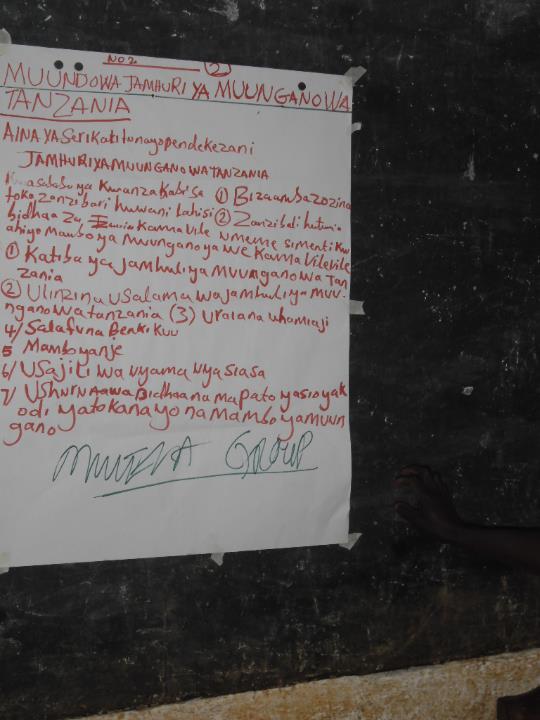 NO 2. (2)
MUUNDOWA JAMHURI YA MUUNGANO WA
TANZANIA
AINA YA SeriKali tunayopendekezani
JAMHURI YA MUUNGANO WA TANZANIA
Kwasababu ya Kwanza Kabisa (1) Bizaambazozina
toka zanzibari huwani Lahisi (2) Zanzibali hutumia
bidhaa za Kama Vile Umeme simenti Kw
ahiyo Mambo ya Muungano ya we Kama Vile Vile
(1) Katiba ya Jamhuli ya Muungano wa Tan
zania
(2) Ulinzi na Usalama wa Jamhuli ya Muu-
ngano wa tanzania (3) Uraiana uhamiaji
4/ Salafu na Benki Kuu
5 Mambo yanje
6/ Usajili wa nyama vya siasa
7/ Ushuru wa Bidhaa na mapato yasio yak
odi yatokanayo na mambo ya muun
gano
GROUP